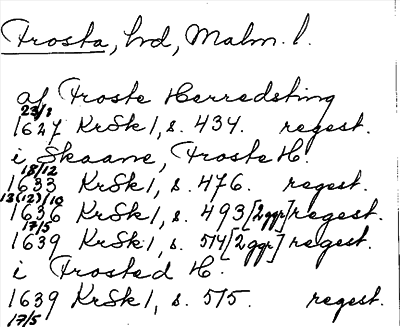 Frosta, hd, Malm. l.
af Froste Herredsting
23/1
1627 KrSk 1, s. 434. regest.
i Skaane, Froste H.
18/12
1633 KrSk 1, s. 476. regest.
1636 KrSk 1, s. 493 [2ggr] regest.
17/5
1639 KrSk 1, s. 514 [2ggr] regest.
i Frosted H.
1639 KrSk 1, s. 515. regest.
17/5